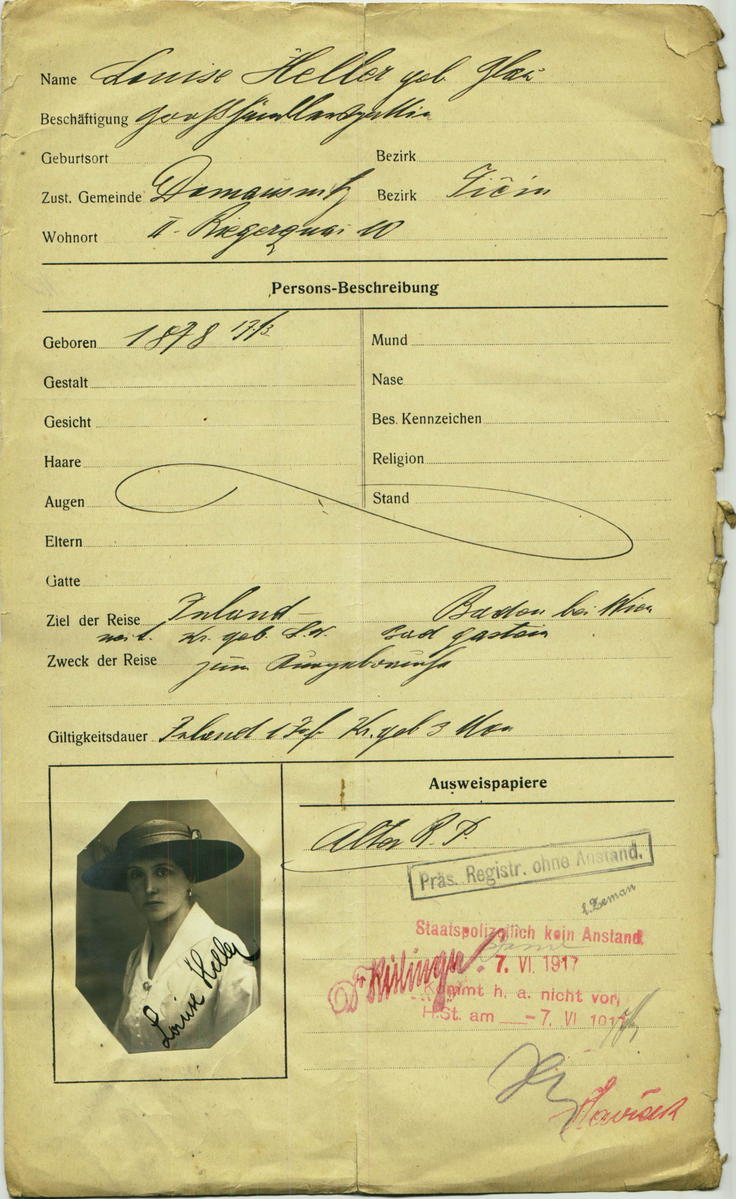 Name Louise Heller geb. Glas
Beschäftigung Großhändlersgattin
Geburtsort Bezirk
Zust. Gemeinde Domausnitz Bezirk Jičin
Wohnort II. Riegerquai 10
Persons-Beschreibung
Geboren 1878 17/3 Mund
Gestalt Nase
Gesicht Bes. Kennzeichen
Haare Religion
Augen Stand
Eltern
Gatte
Ziel der Reise Inland Baden bei Wien
Kr. geb. Bad Gastein
Zweck der Reise zum Kurgebrauche
Giltigkeitsdauer Inland 1 Kr. geb 3 Mon
Ausweispapiere
Alter R. P.
Präs. Registr. ohne Anstand.
L. Zeman
Staatspolizeilich kein Anstand
7. VI. 1917
Kommt h. a. nicht vor,
H.St. am -7. VI 1917
Louise Heller
Havíček